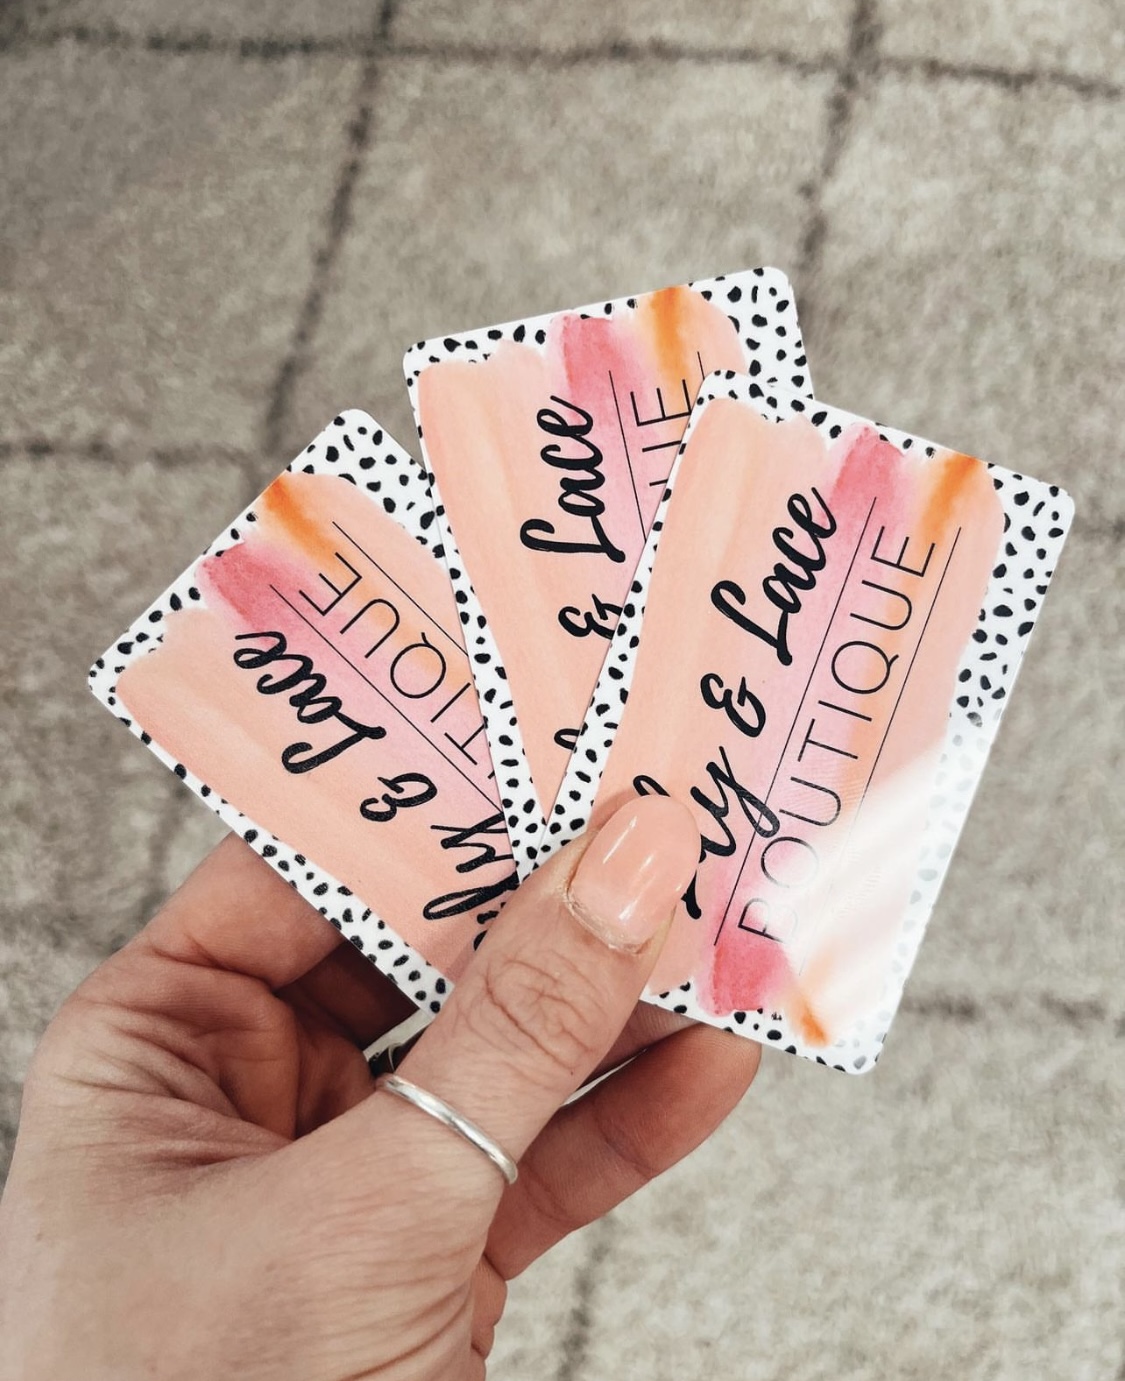 & Lace
TIQUE
& Lace
UE
& Lace
BOUTIQUE